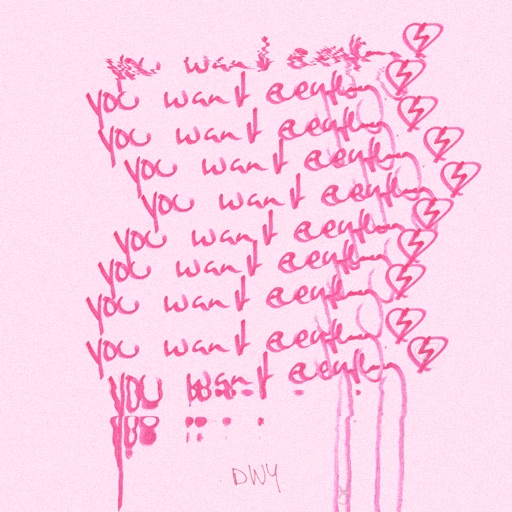 you want everything
you want everything
you want everything
you want everything
you want everything
you want everything
you want everything
you want everything
you want everything
you want everything
DWY